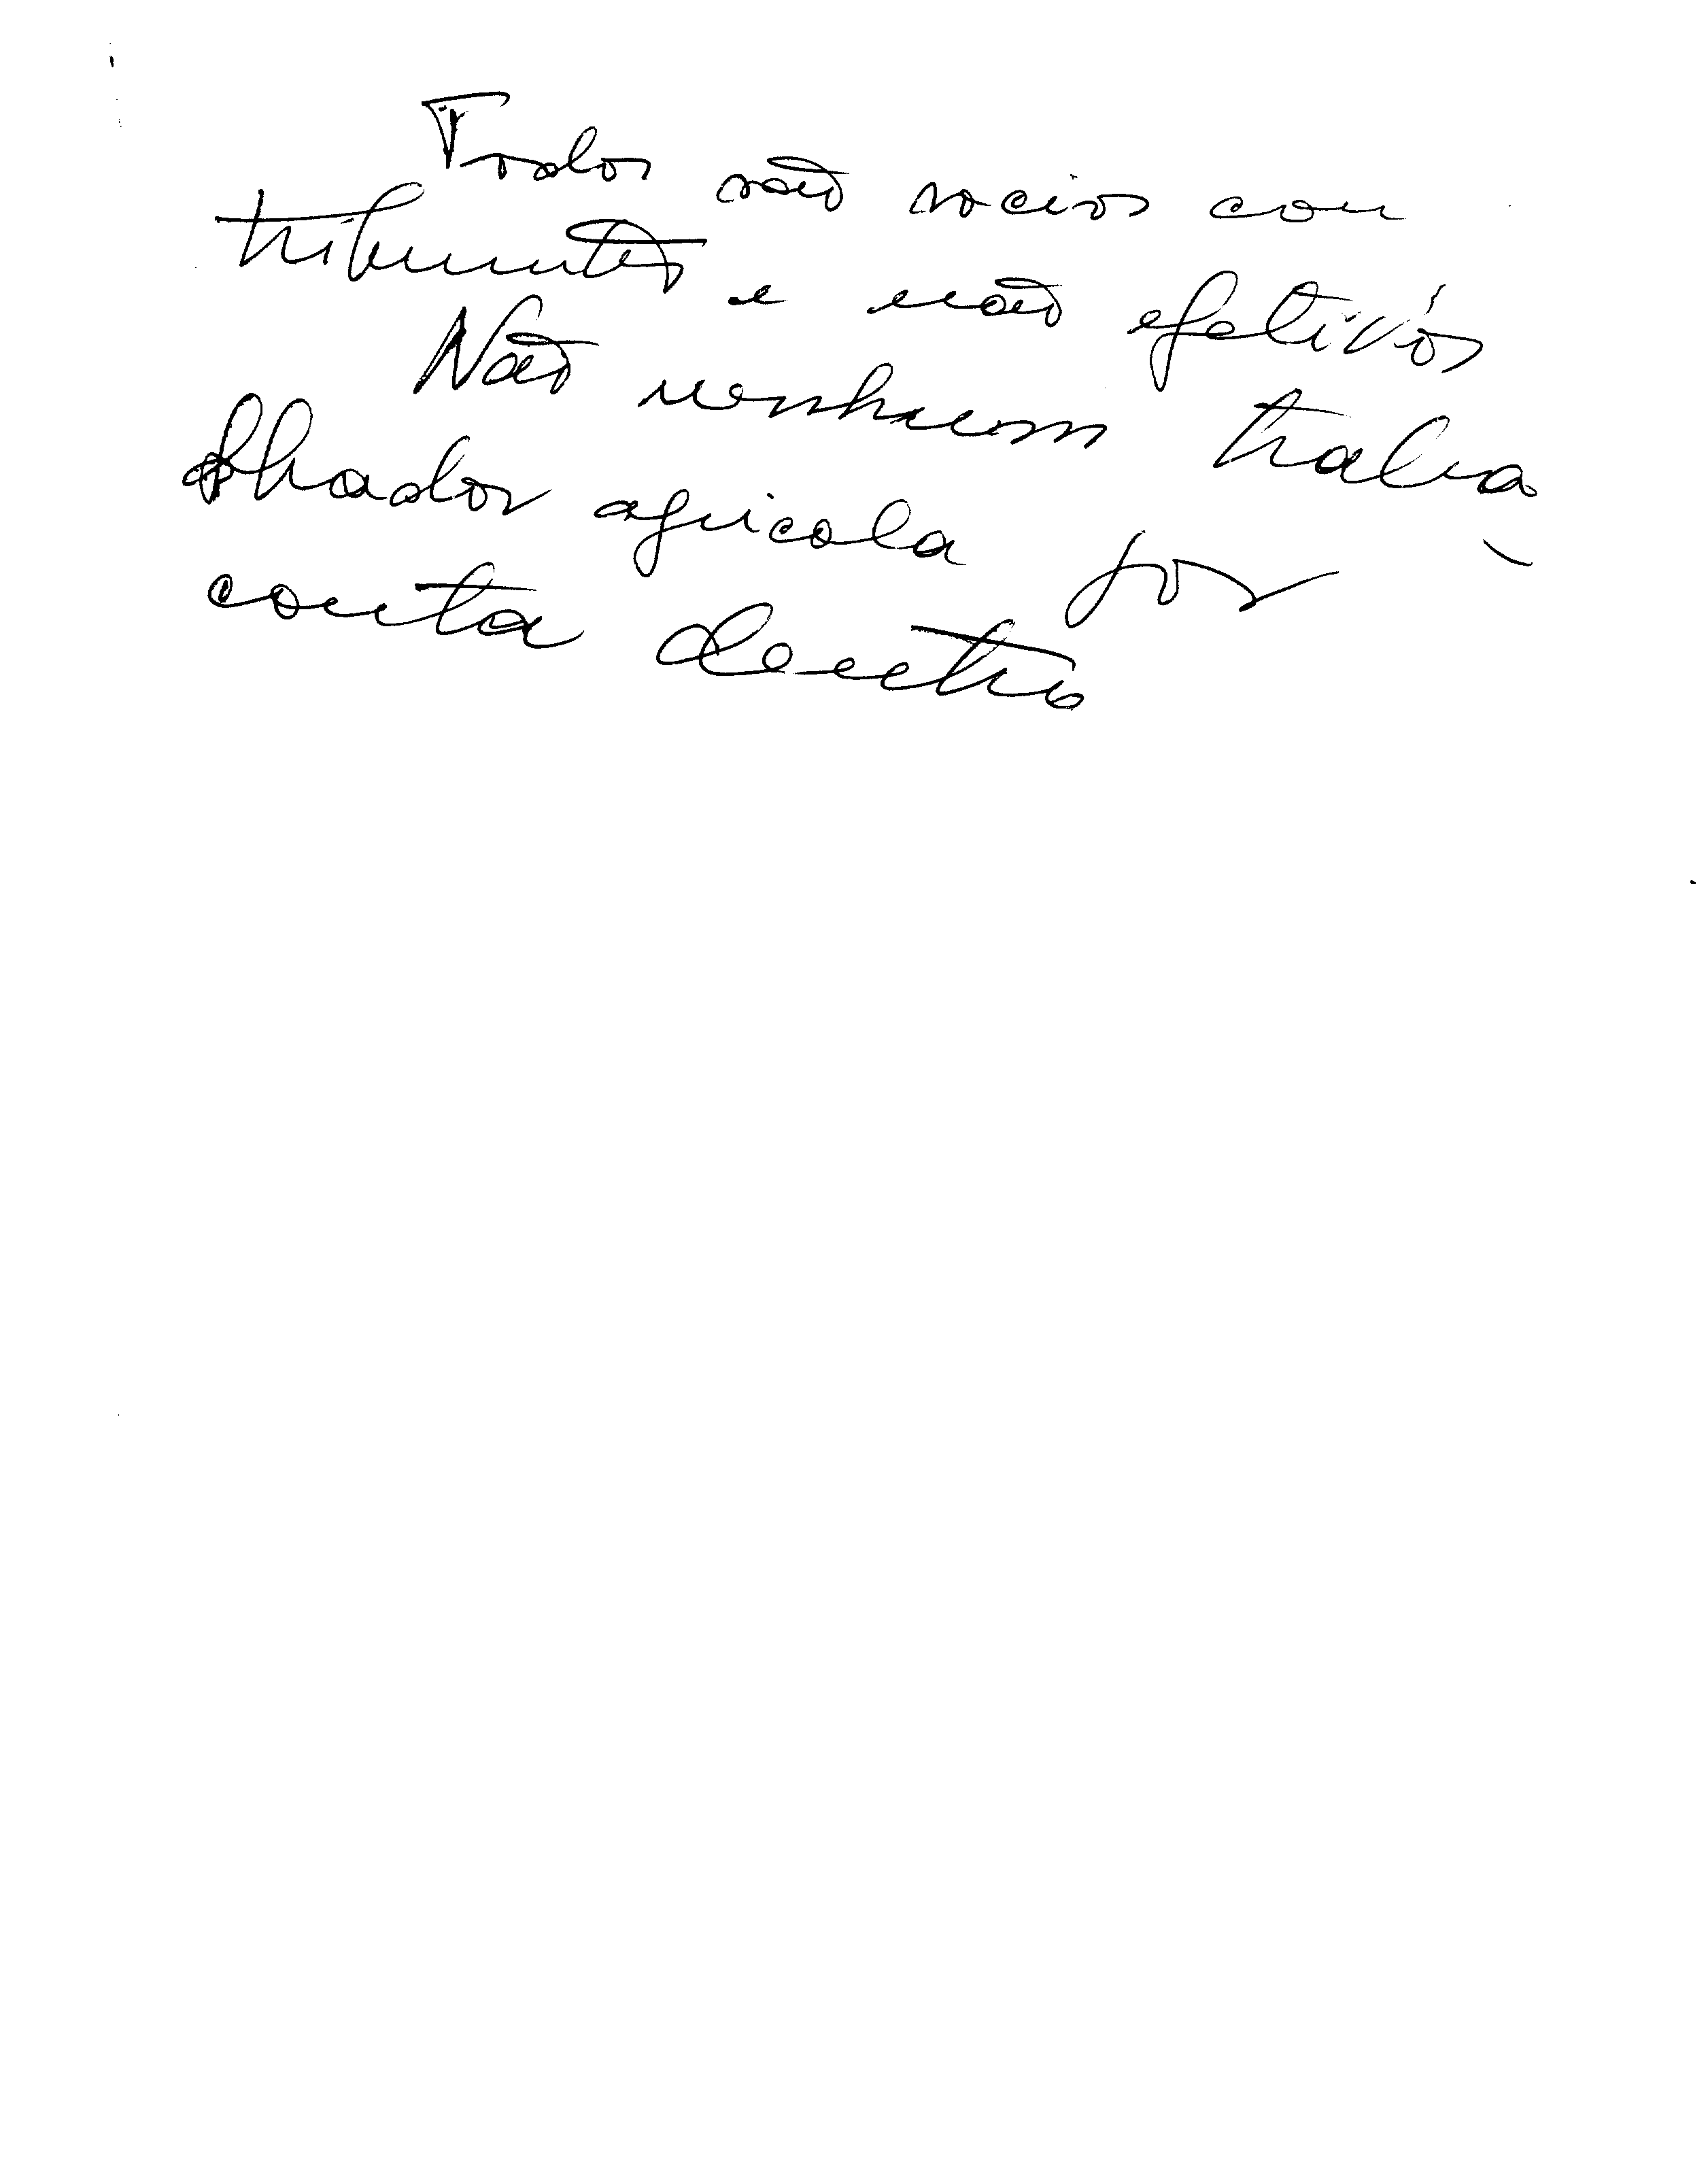 Todos são socios con
tribuintes e não efetivos
Não nenhum traba
lhador agricola por
conta dentro